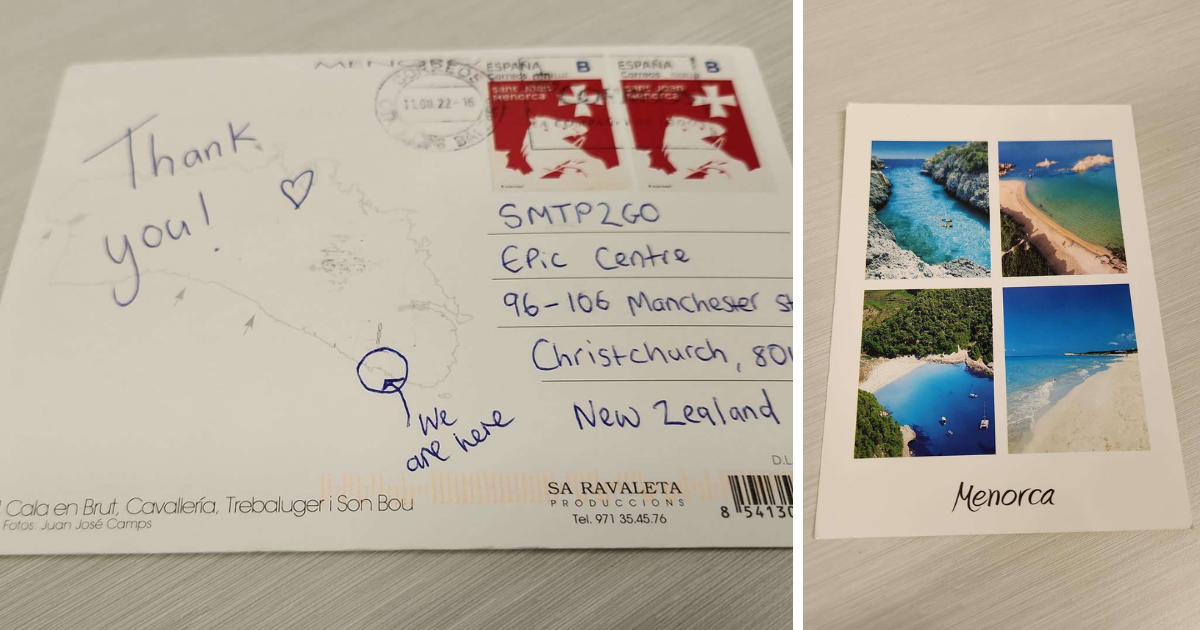 Thank
you!
We
are here
MENORCA
CORREOS
11.08.22-16
ESPAÑA B
Correos
Sant Joan
Menorca
ESPAÑA B
Correos
Sant Joan
Menorca
SMTP2GO
EPic Centre
96-106 Manchester st
Christchurch, 801
New Zealand
D.L
Cala en Brut, Cavallería, Trebaluger i Son Bou
Fotos: Juan José Camps
SA RAVALETA
PRODUCCIONS
Tel. 971 35.45.76
8 54130
Menorca